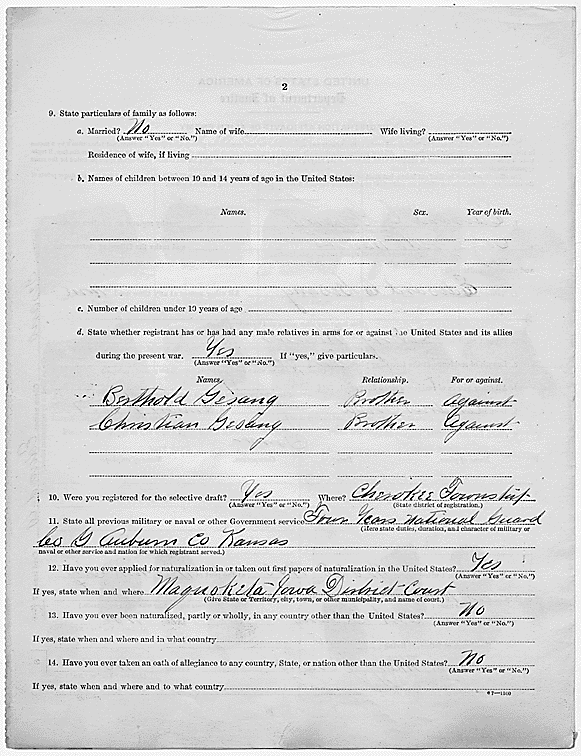 2
9. State particulars of family as follows:
a. Married? No Name of wife Wife living?
(Answer "Yes" or "No.") (Answer "Yes" or "No.")
Residence of wife, if living
b. Names of children between 10 and 14 years of age in the United States:
Names. Sex. Year of birth.
c. Number of children under 10 years of age
d. State whether registrant has or has had any male relatives in arms for or against the United States and its allies
during the present war. Yes If "yes," give particulars.
(Answer "Yes" or "No.")
Names. Relationship. For or against.
Berthold Gesang Brother Against
Christian Gesang Brother Against
10. Were you registered for the selective draft? Yes Where? Cherokee Township
(Answer "Yes" or "No.") (State district of registration.)
11. State all previous military or naval or other Government service Four Years National Guard
(Here state duties, duration, and character of military or
Co G Auburn Co Kansas
naval or other service and nation for which registrant served.)
12. Have you ever applied for naturalization in or taken out first papers of naturalization in the United States? Yes
(Answer "Yes" or "No.")
If yes, state when and where Maquoketa Iowa District Court
(Give State or Territory, city, town, or other municipality, and name of court.)
13. Have you ever been naturalized, partly or wholly, in any country other than the United States? No
(Answer "Yes" or "No.")
If yes, state when and where and in what country
14. Have you ever taken an oath of allegiance to any country, State, or nation other than the United States? No
(Answer "Yes" or "No.")
If yes, state when and where and to what country